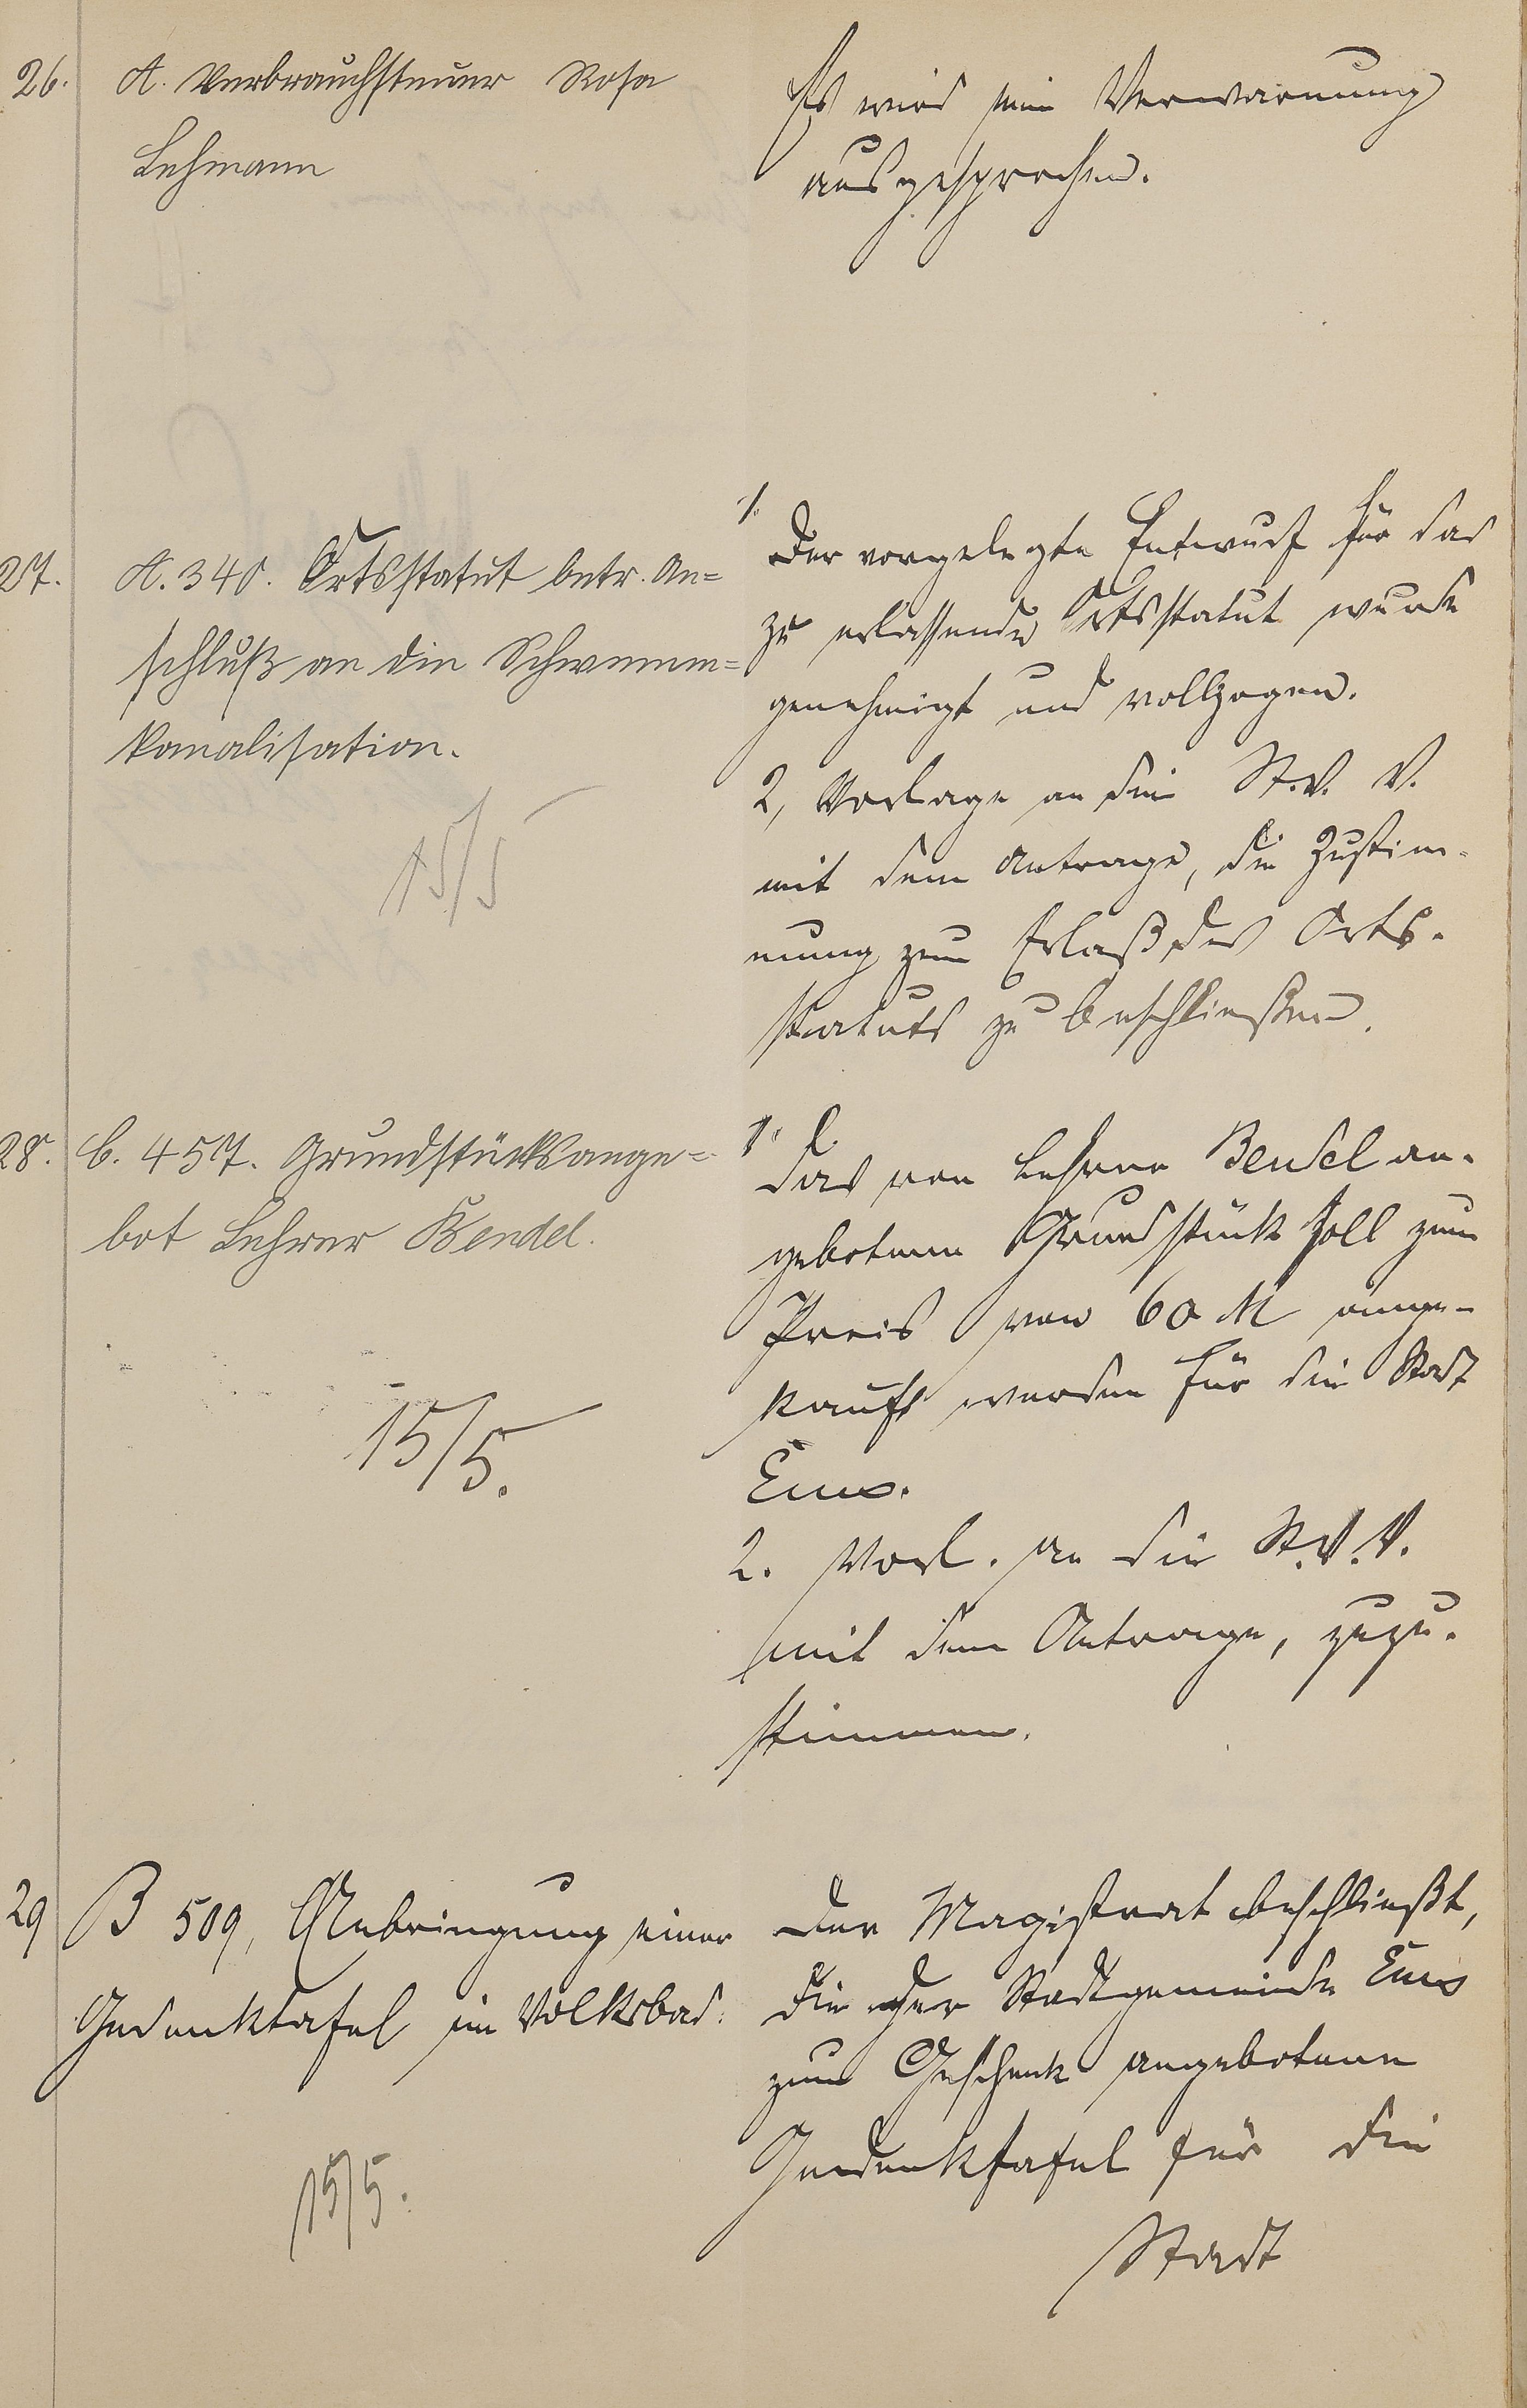 26.
A. Verbrauchsteuer Rosa
Lehmann
Es wird eine Verwarnung
ausgesprochen.
27.
A. 340. Ortsstatut betr. An=
schluß an die Schwemm=
kanalisation.
15/5
1.
Der vorgelegte Entwurf für das
zu erlassende Ortsstatut wurde
genehmigt und vollzogen.
2, Vorlage an die St. V. V.
mit dem Antrage, die Zustim-
mung zum Erlaß des Orts-
statuts zu beschließen.
28.
C. 457. Grundstücksange=
bot Lehrer Bendel.
15/5.
1.
Das von Lehrer Bendel an-
gebotene Grundstück soll zum
Preis von 60 M ange-
kauft werden für die Stadt
Ems.
2. Vorl. an die St. V. V.
mit dem Antrage, zuzu-
stimmen.
29
B 509, Anbringung einer
Gedenktafel im Volksbad.
15/5.
Der Magistrat beschließt,
die der Stadtgemeinde Ems
zum Geschenk angebotene
Gedenktafel für die
Stadt